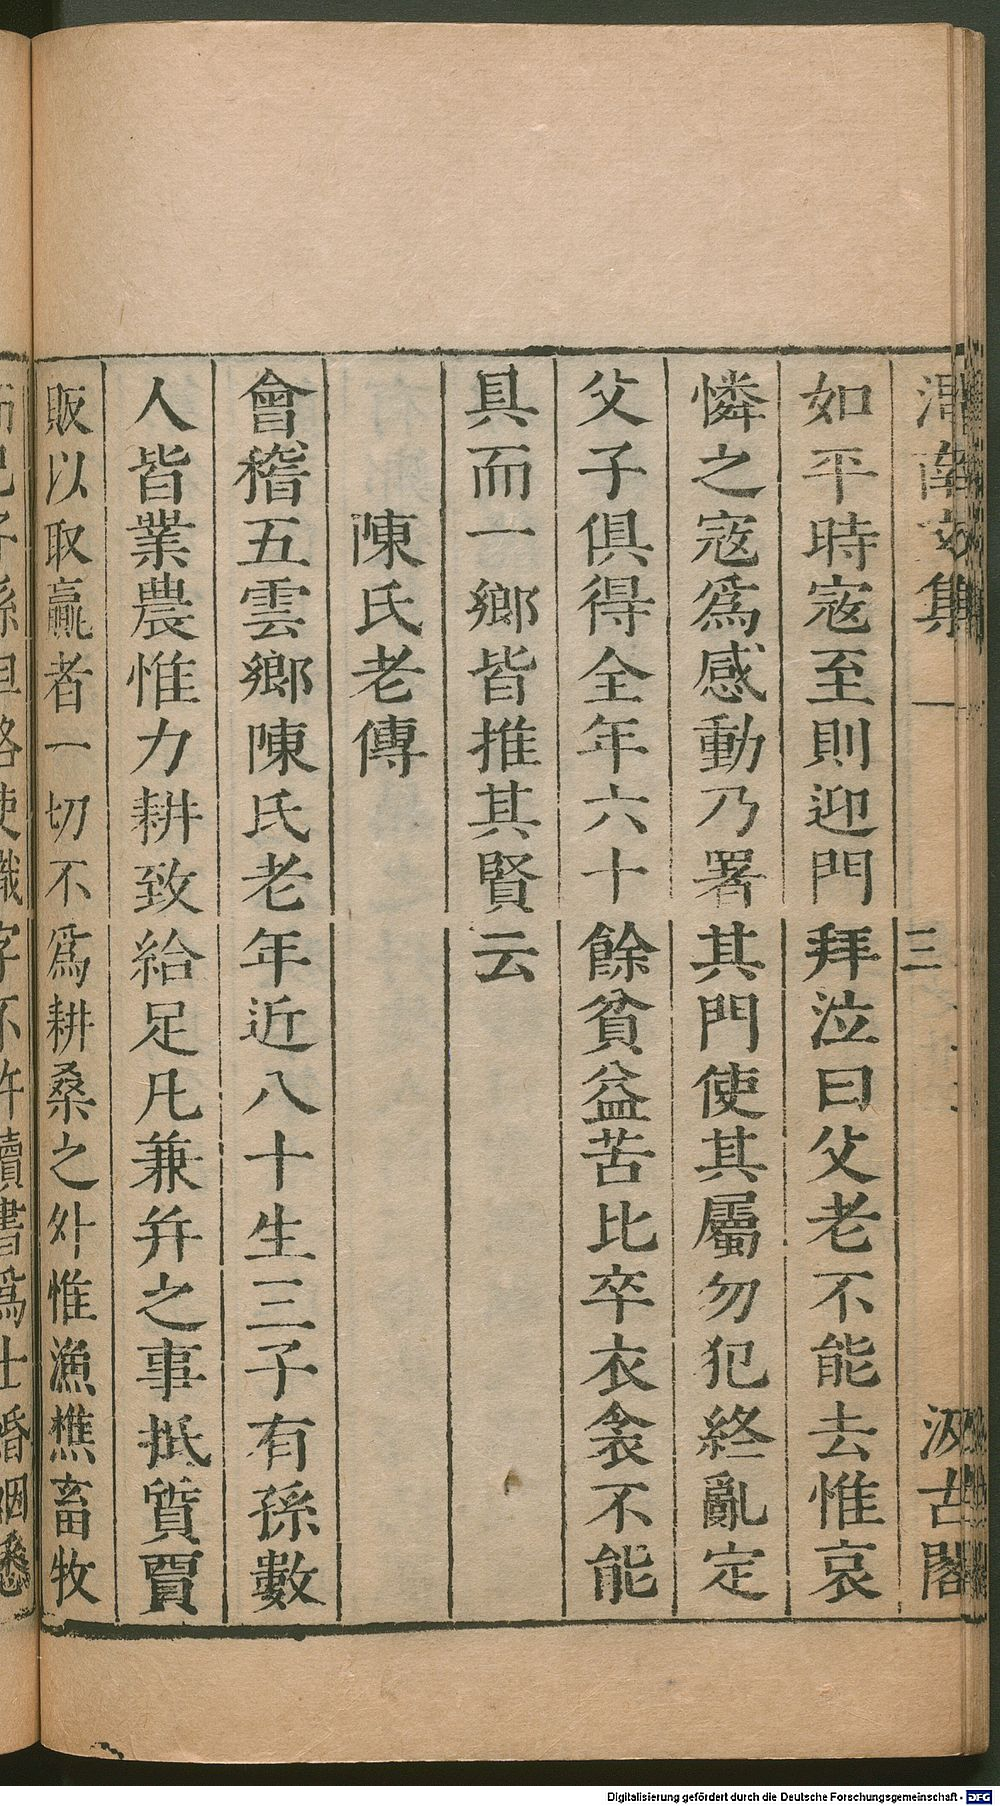 渭南文集 一 三 汲古閣
如平時宼至則迎門拜泣曰父老不能去惟哀
憐之宼爲感動乃署其門使其屬勿犯終亂定
父子俱得全年六十餘貧益苦比卒衣衾不能
具而一鄉皆推其賢云
陳氏老傳
會稽五雲鄉陳氏老年近八十生三子有孫數
人皆業農惟力耕致給足凡兼并之事抵質賈
販以取贏者一切不爲耕桑之外惟漁樵畜牧
而已子孫但略使識字不許讀書爲士婚姻悉
Digitalisierung gefördert durch die Deutsche Forschungsgemeinschaft - DFG